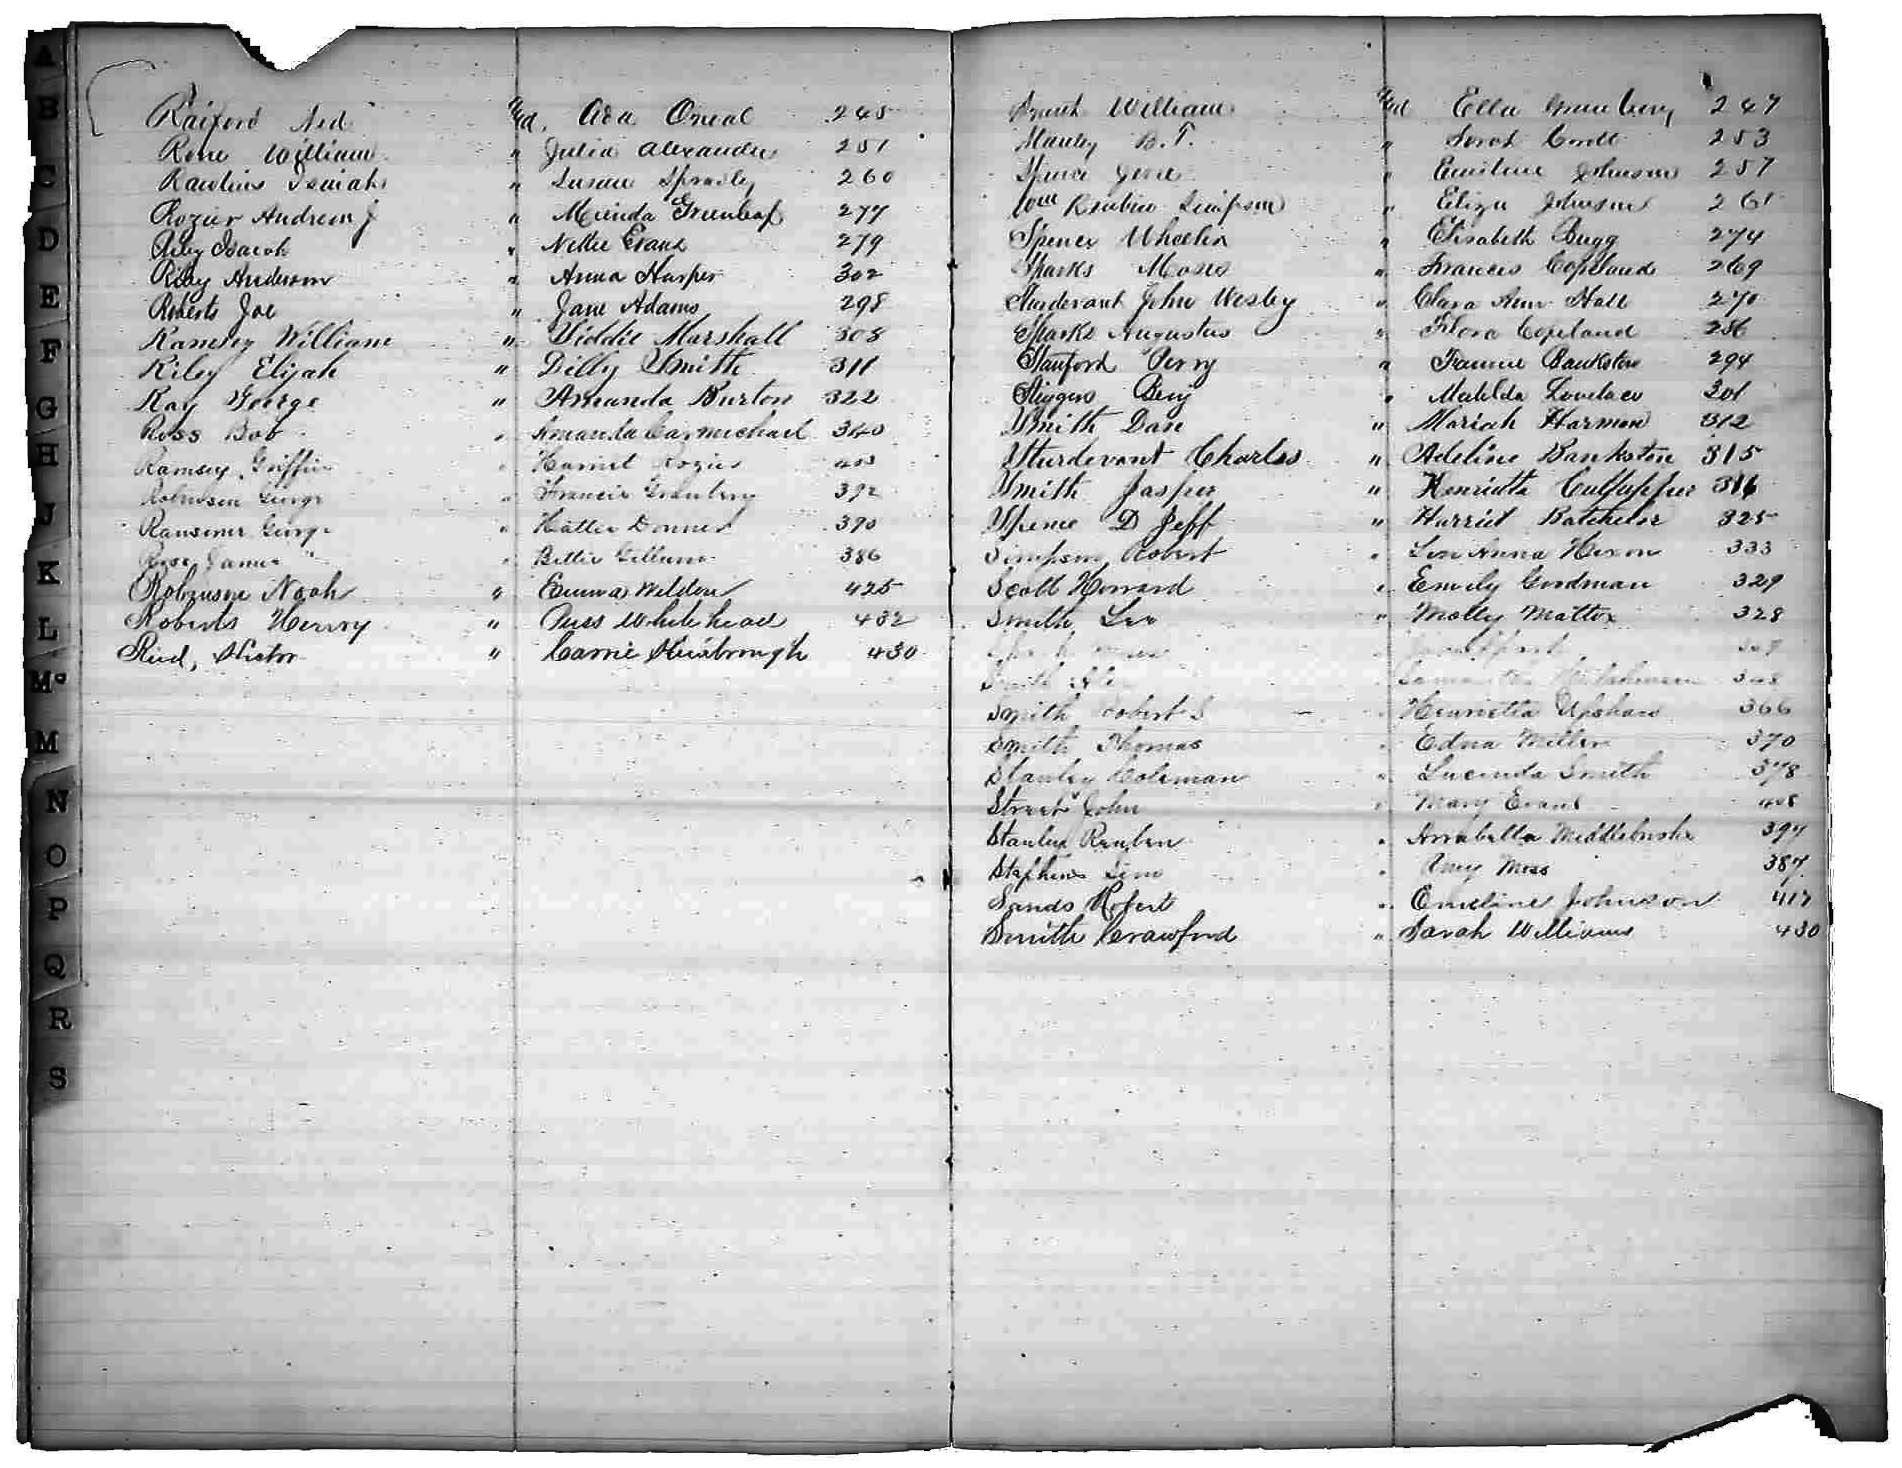 A
B
C
D
E
F
G
H
J
K
L
Mc
M
N
O
P
Q
R
S
Raiford Ned & Ada Oneal 245
Rone William " Julia Alexander 251
Rawlins Isaiah " Susan Spraley 260
Rozier Andrew J " Mirinda Greenleaf 277
Riley Isaiah " Nellie Evans 279
Riley Anderson " Anna Harper 302
Roberts Joe " Jane Adams 298
Ramsey William " Siddie Marshall 308
Riley Elijah " Dilly Smith 311
Ray George " Amanda Burton 322
Ross Bob " Amanda Carmichael 340
Ramsey Griffin " Harriet Rozier 403
Robinson George " Francis Granbery 392
Ransomer George " Hattie Donner 390
Ross James " Bettie Gillum 386
Robinson Noah " Emma Weldon 425
Roberts Henry " Puss Whitehead 432
Ried, Victor " Carrie 430
Smith William & Ella Granbery 247
Stanley B. T. " Sarah 253
Spence Jesse " Emiline Johnson 257
Reubin Simpson " Eliza Johnson 261
Spence Wheeler " Elisabeth Bugg 274
Sparks Moses " Frances Copeland 269
Sturdevant John Wesley " Clara Ann Hall 270
Sparks Augustus " Flora Copeland 286
Stanford Perry " Fannie Bankston 294
Stiggers Benj " Matilda Lovelace 301
Smith Dan " Mariah Harmon 312
Sturdevant Charles " Adeline Bankston 315
Smith Jasper " Henrietta Culpepper 316
Spence D Jeff " Harriet Batchelor 325
Simpson Robert " Lou Anna Hixon 333
Scott Howard " Emily Goodman 329
Smith Lee " Molly Mattox 328
Smith " 348
Smith Robert S " Henrietta Upshaw 366
Smith Thomas " Edna Miller 370
Stanley Coleman " Lucinda Smith 378
Street John " Mary Evans 408
Stanley Reuben " Arrabella Middlebrooks 397
Stephens Sim " Amy Moss 387
Sands Robert " Emeline Johnson 417
Smith Crawford " Sarah Williams 430